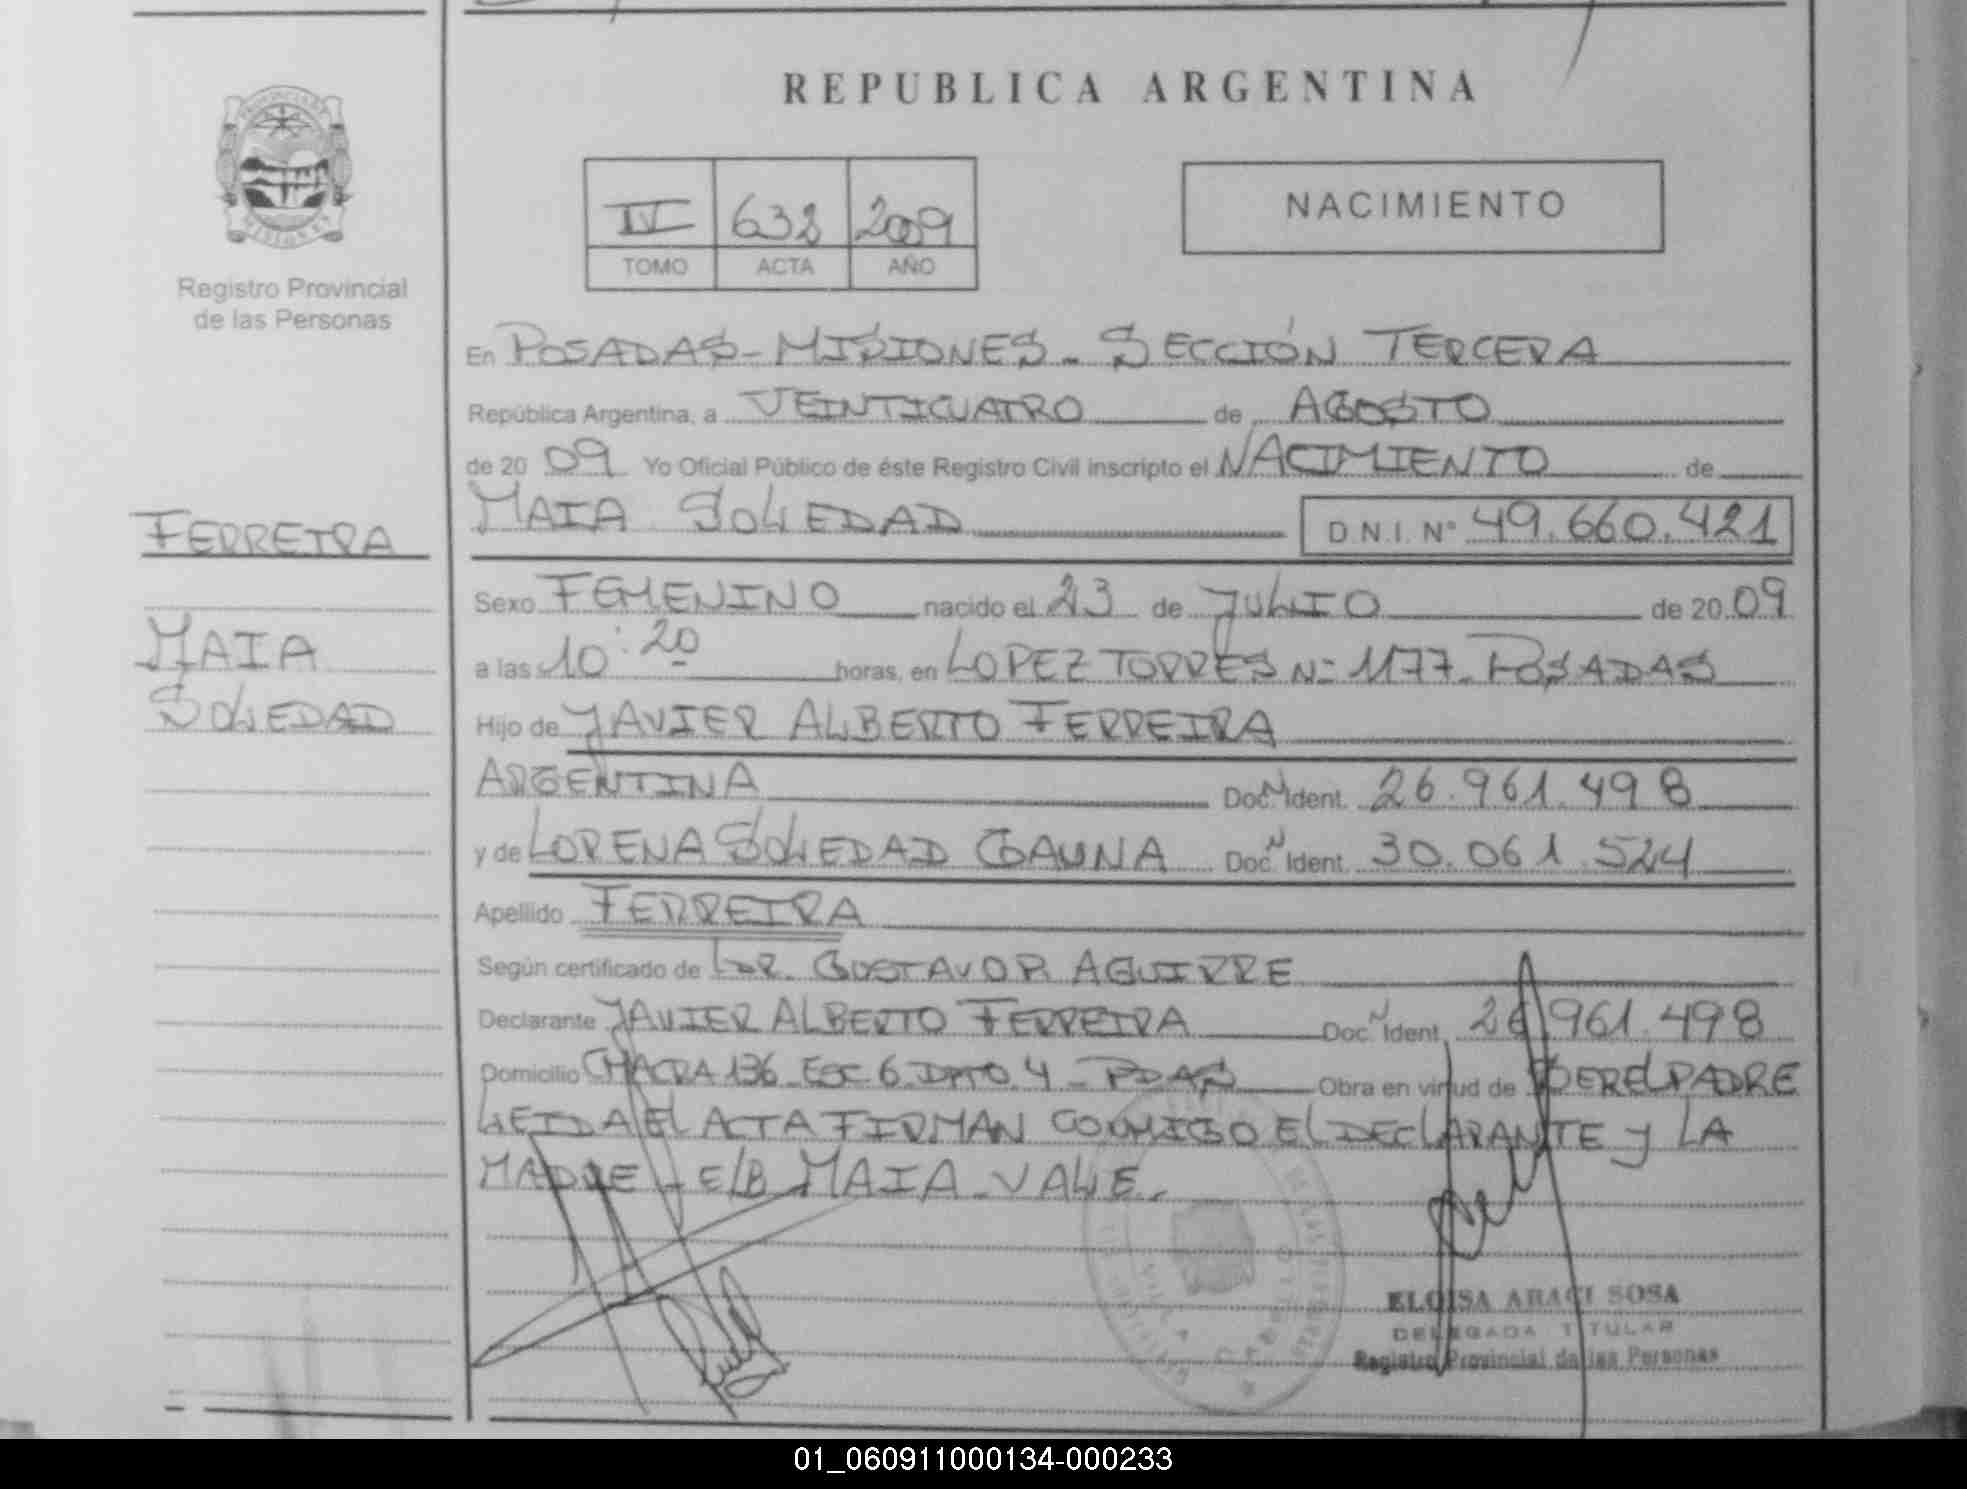 REPUBLICA ARGENTINA
NACIMIENTO
IV 632 2009
TOMO ACTA AÑO
Registro Provincial
de las Personas
En POSADAS - MISIONES - SECCIÓN TERCERA
República Argentina, a VEINTICUATRO de AGOSTO
de 20 09 Yo Oficial Público de éste Registro Civil inscripto el NACIMIENTO de
MAIA SOLEDAD D.N.I. N° 49.660.421
FERREIRA
MAIA
SOLEDAD
Sexo FEMENINO nacido el 23 de JULIO de 20 09
a las 10:20 horas, en LOPEZ TORRES Nº 1177 - POSADAS
Hijo de JAVIER ALBERTO FERREIRA
ARGENTINA Doc. N Ident. 26.961.498
y de LORENA SOLEDAD GAUNA Doc. N Ident. 30.061.524
Apellido FERREIRA
Según certificado de DR. GUSTAVO R AGUIRRE
Declarante JAVIER ALBERTO FERREIRA Doc. N Ident. 26.961.498
Domicilio CHACRA 136 ESC 6 DPTO 4 - PDAS Obra en virtud de SER EL PADRE
LEIDA EL ACTA FIRMAN CONMIGO EL DECLARANTE Y LA
MADRE - E/B MAIA - VALE.
ELOISA ARACI SOSA
DELEGADA TITULAR
Registro Provincial de las Personas
01_060911000134-000233